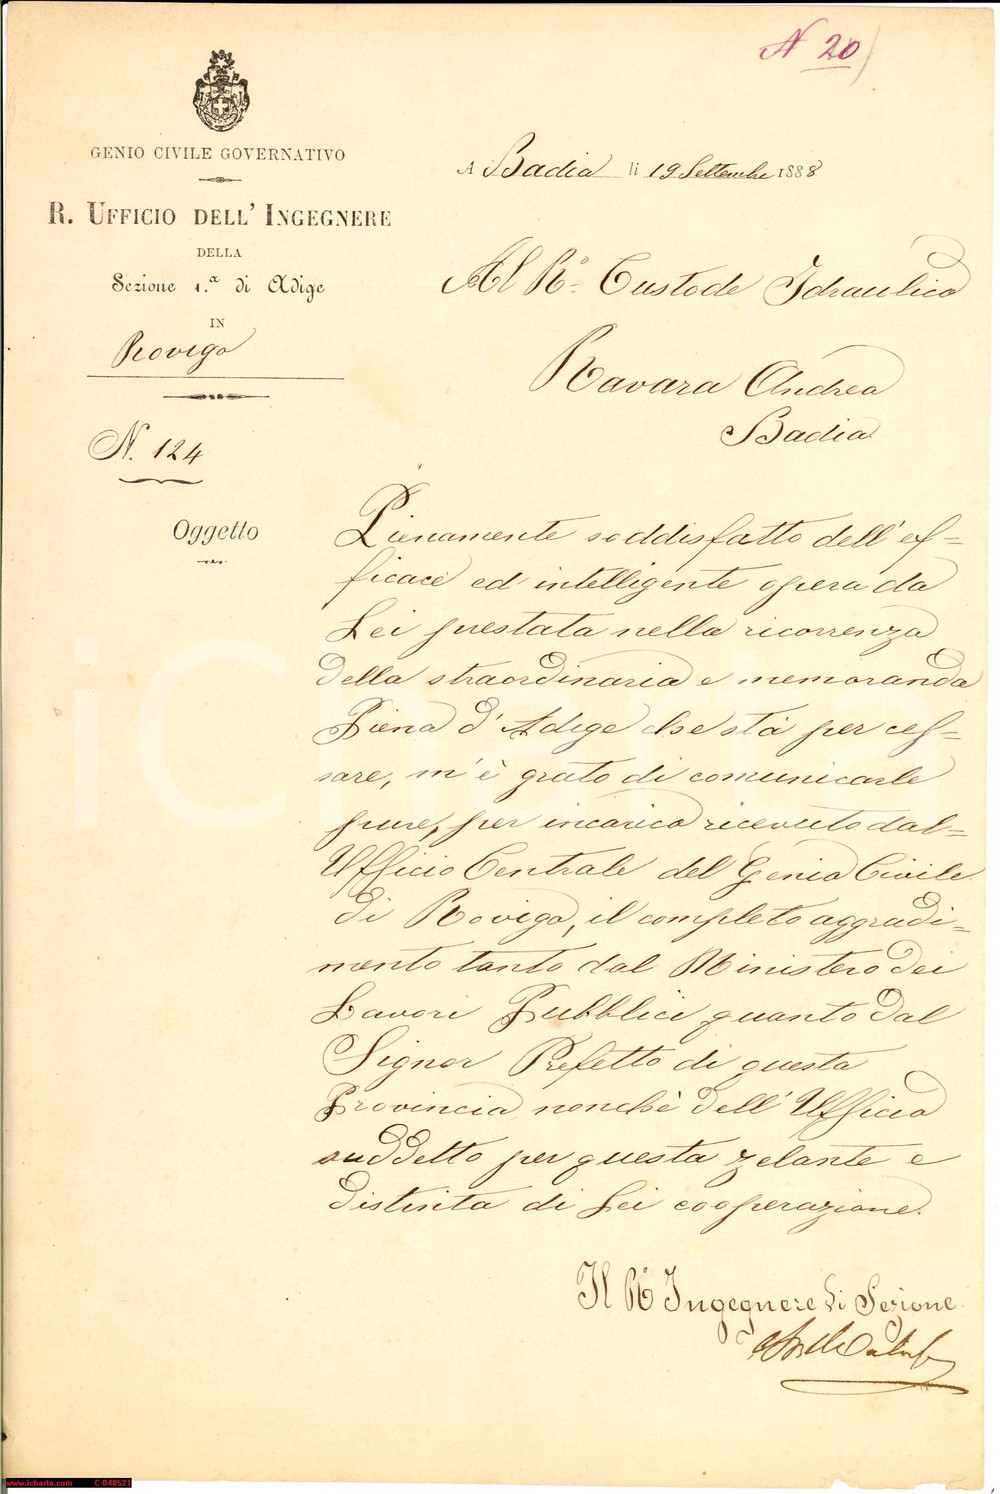 N 20
GENIO CIVILE GOVERNATIVO
R. UFFICIO DELL' INGEGNERE
DELLA
Sezione 1.ª di Adige
IN
Rovigo
N. 124
Oggetto
A Badia li 19 Settembre 1888
Al R.º Custode Idraulico
Ravara Andrea
Badia
Pienamente soddisfatto dell'ef=
ficace ed intelligente opera da
Lei prestata nella ricorrenza
della straordinaria e memoranda
Piena d'Adige che stà per ces=
sare, m'è grato di comunicarle
pure, per incarico ricevuto dal=
Ufficio Centrale del Genio Civile
di Rovigo, il completo aggradi=
mento tanto dal Ministero dei
Lavori Pubblici quanto dal
Signor Prefetto di questa
Provincia, nonchè dell'Ufficio
suddetto per questa zelante e
distinta di Lei cooperazione.
Il Rº Ingegnere di Sezione
iCharta
www.icharta.com C-048521